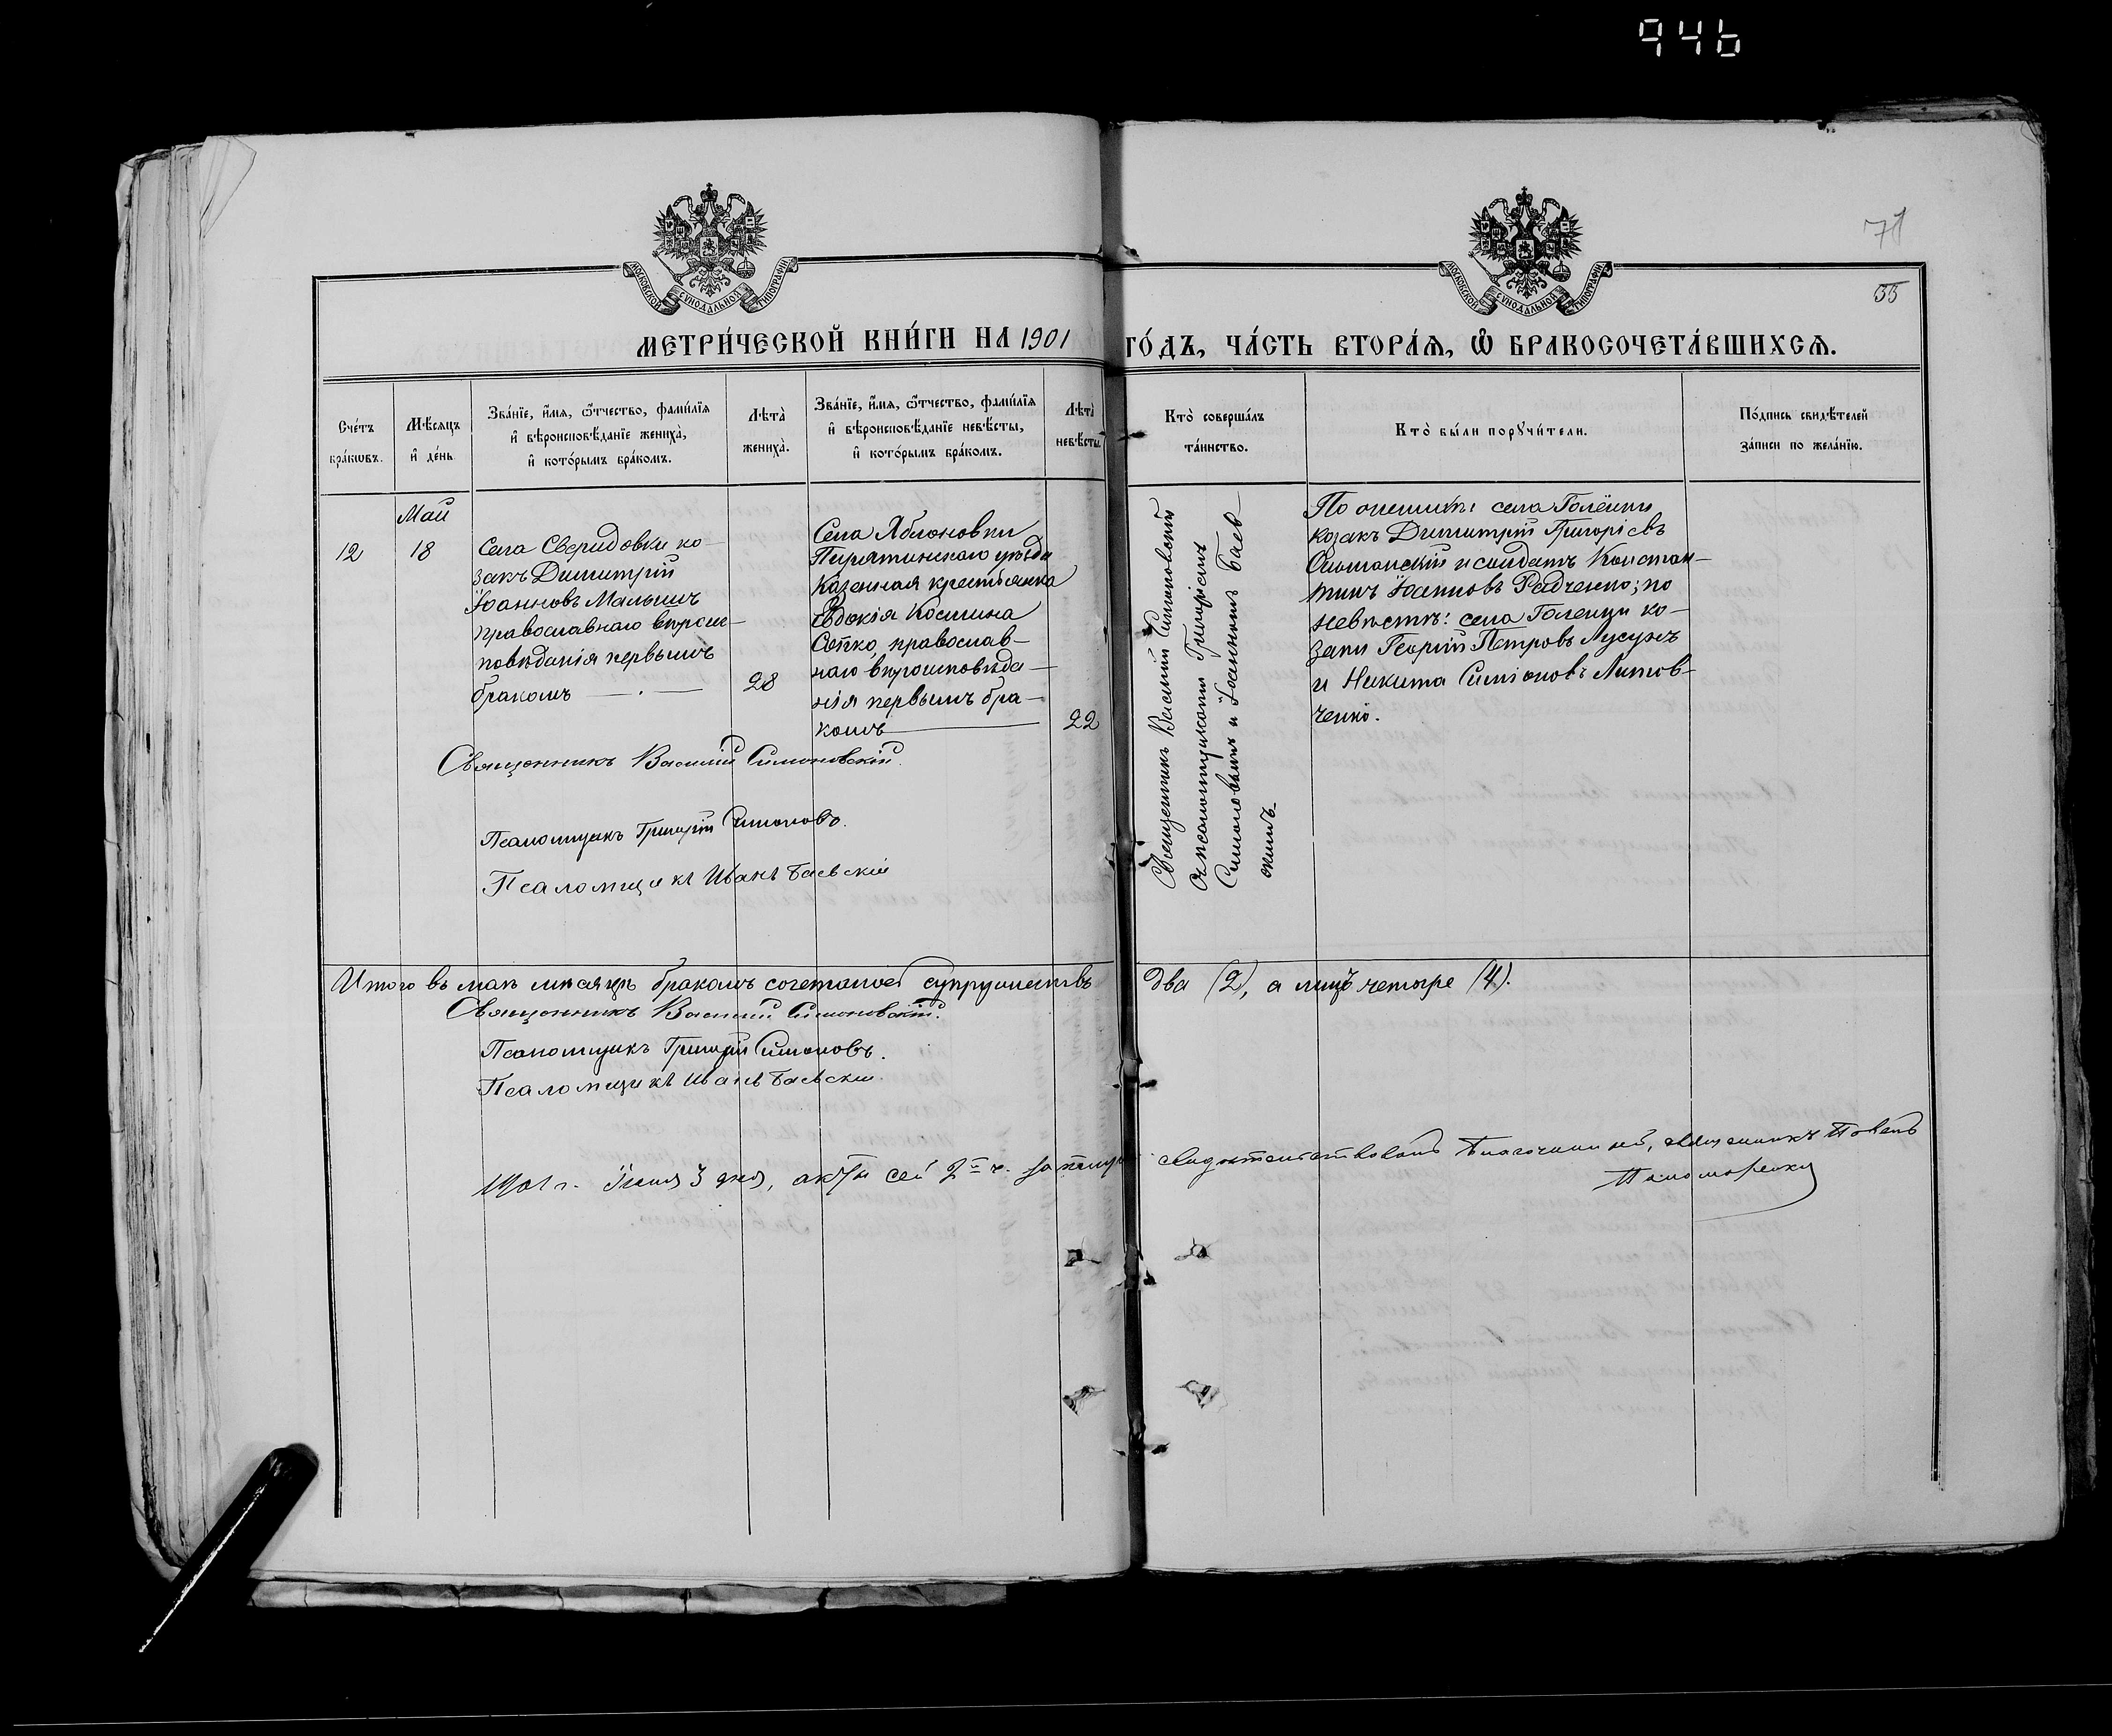 946
71
55
МОСКОВСКОЙ СѴНОДАЛЬНОЙ ТИПОГРАФІИ
МОСКОВСКОЙ СѴНОДАЛЬНОЙ ТИПОГРАФІИ
МЕТРИ́ЧЕСКОЙ КНИ́ГИ НА 1901 ГО́ДЪ, ЧА́СТЬ ВТОРА́Ѧ, Ѽ БРАКОСОЧЕТА́ВШИХСѦ.
Сче́тъ
бра́кѡвъ.
Мѣ́сѧцъ
и҆ де́нь
Зва́нїе, и҆́мѧ, ѻ҆́тчество, фами́лїѧ
и҆ вѣроисповѣ́данїе жениха̀,
и҆ кото́рымъ бра́комъ.
Лѣта̀
жениха̀.
Зва́нїе, и҆́мѧ, ѻ҆́тчество, фами́лїѧ
и҆ вѣроисповѣ́данїе невѣ́сты,
и҆ кото́рымъ бра́комъ.
Лѣта̀
невѣ́сты.
Кто̀ соверша́лъ
та́инство.
Кто̀ бы́ли порꙋчи́тели.
По́дпись свидѣ́телей
за́писи по жела́нїю.
Май
12
18
Села Сверидовки ко-
закъ Димитрій
Іоанновъ Малышъ
православнаго вѣроис-
повѣданія первымъ
бракомъ
28
Села Яблоновки
Пирятинскаго уѣзда
казенная крестьянка
Евдокія Космина
Сотко, православ-
наго вѣроисповѣда-
нія первымъ бра-
комъ
22
Священникъ Василій Симоновскій
съ псаломщиками Григоріемъ
Симоновымъ и Іоанномъ Баев-
скимъ
По женихѣ: села Голенки
козакъ Димитрій Григоріевъ
и солдатъ Констан-
тинъ Іоанновъ Радченко; по
невѣстѣ: села Голенки ко-
заки Георгій Петровъ
и Никита Симіоновъ Литов-
ченко.
Священникъ Василій Симоновскій.
Псаломщикъ Григорій Симоновъ.
Псаломщикъ Иванъ Баевскій
Итого въ маѣ мѣсяцѣ бракомъ сочеталось супружествъ два (2), а лицъ четыре (4).
Священникъ Василій Симоновскій.
Псаломщикъ Григорій Симоновъ.
Псаломщикъ Иванъ Баевскій.
1901 г. Іюня 3 дня, сей 2-й ч. свидѣтельствовалъ Благочинный, священникъ Павелъ
Пономаренко